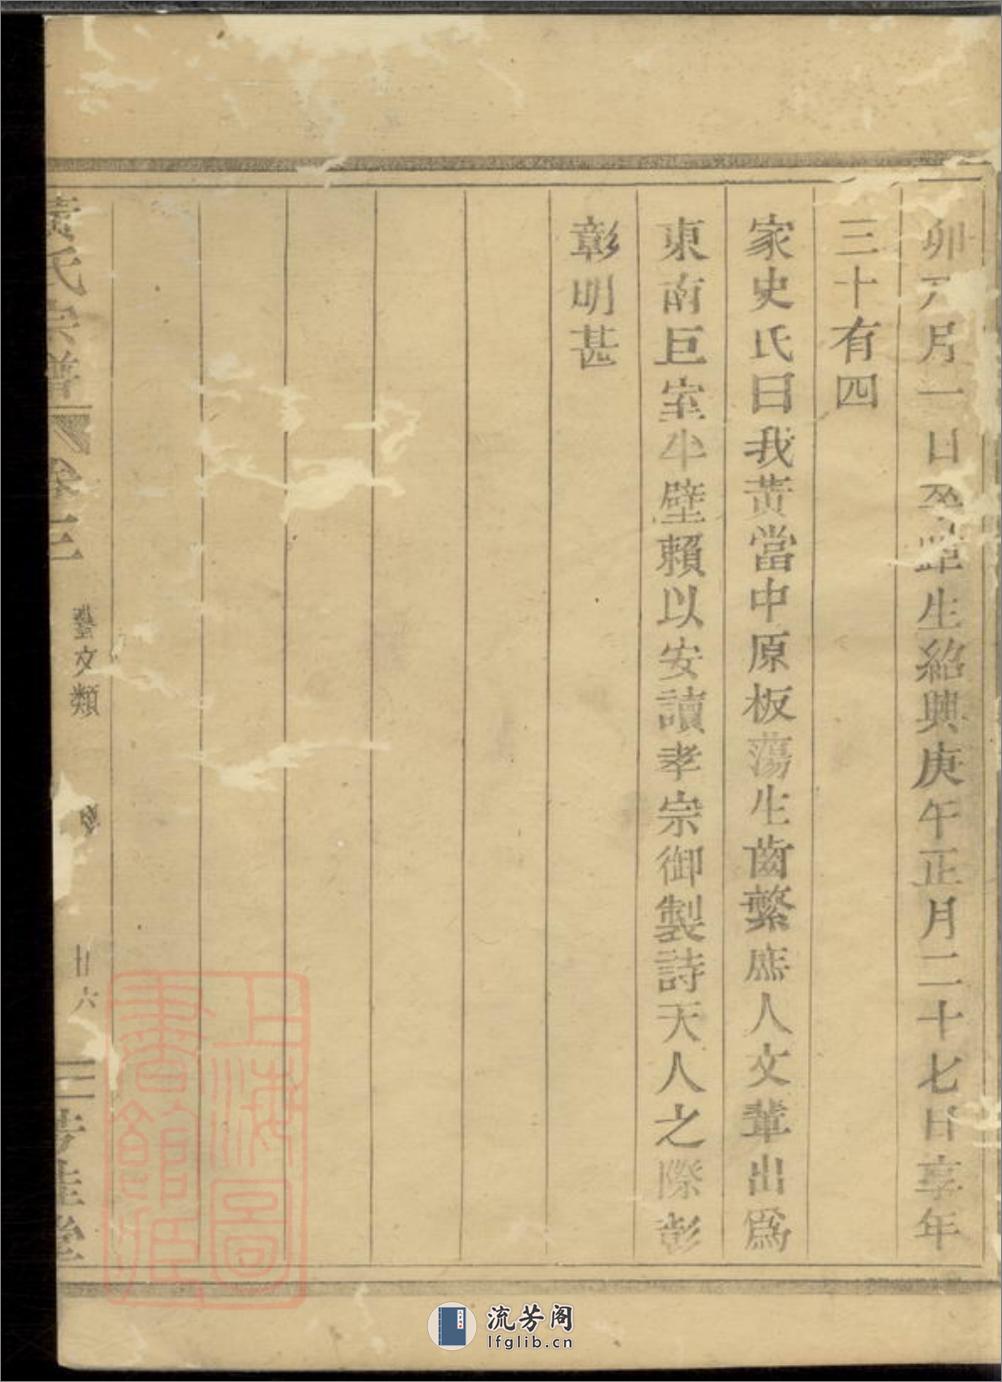 卯六月一日卒距生紹興庚午正月二十七日享年
三十有四
家史氏曰我黃當中原板蕩生齒繁庶人文輩出爲
東南巨室半壁賴以安讀孝宗御製詩天人之際彰
彰明甚
黃氏宗譜
卷三
藝文類
廿六
上海圖
書館藏
流芳阁
lfglib.cn